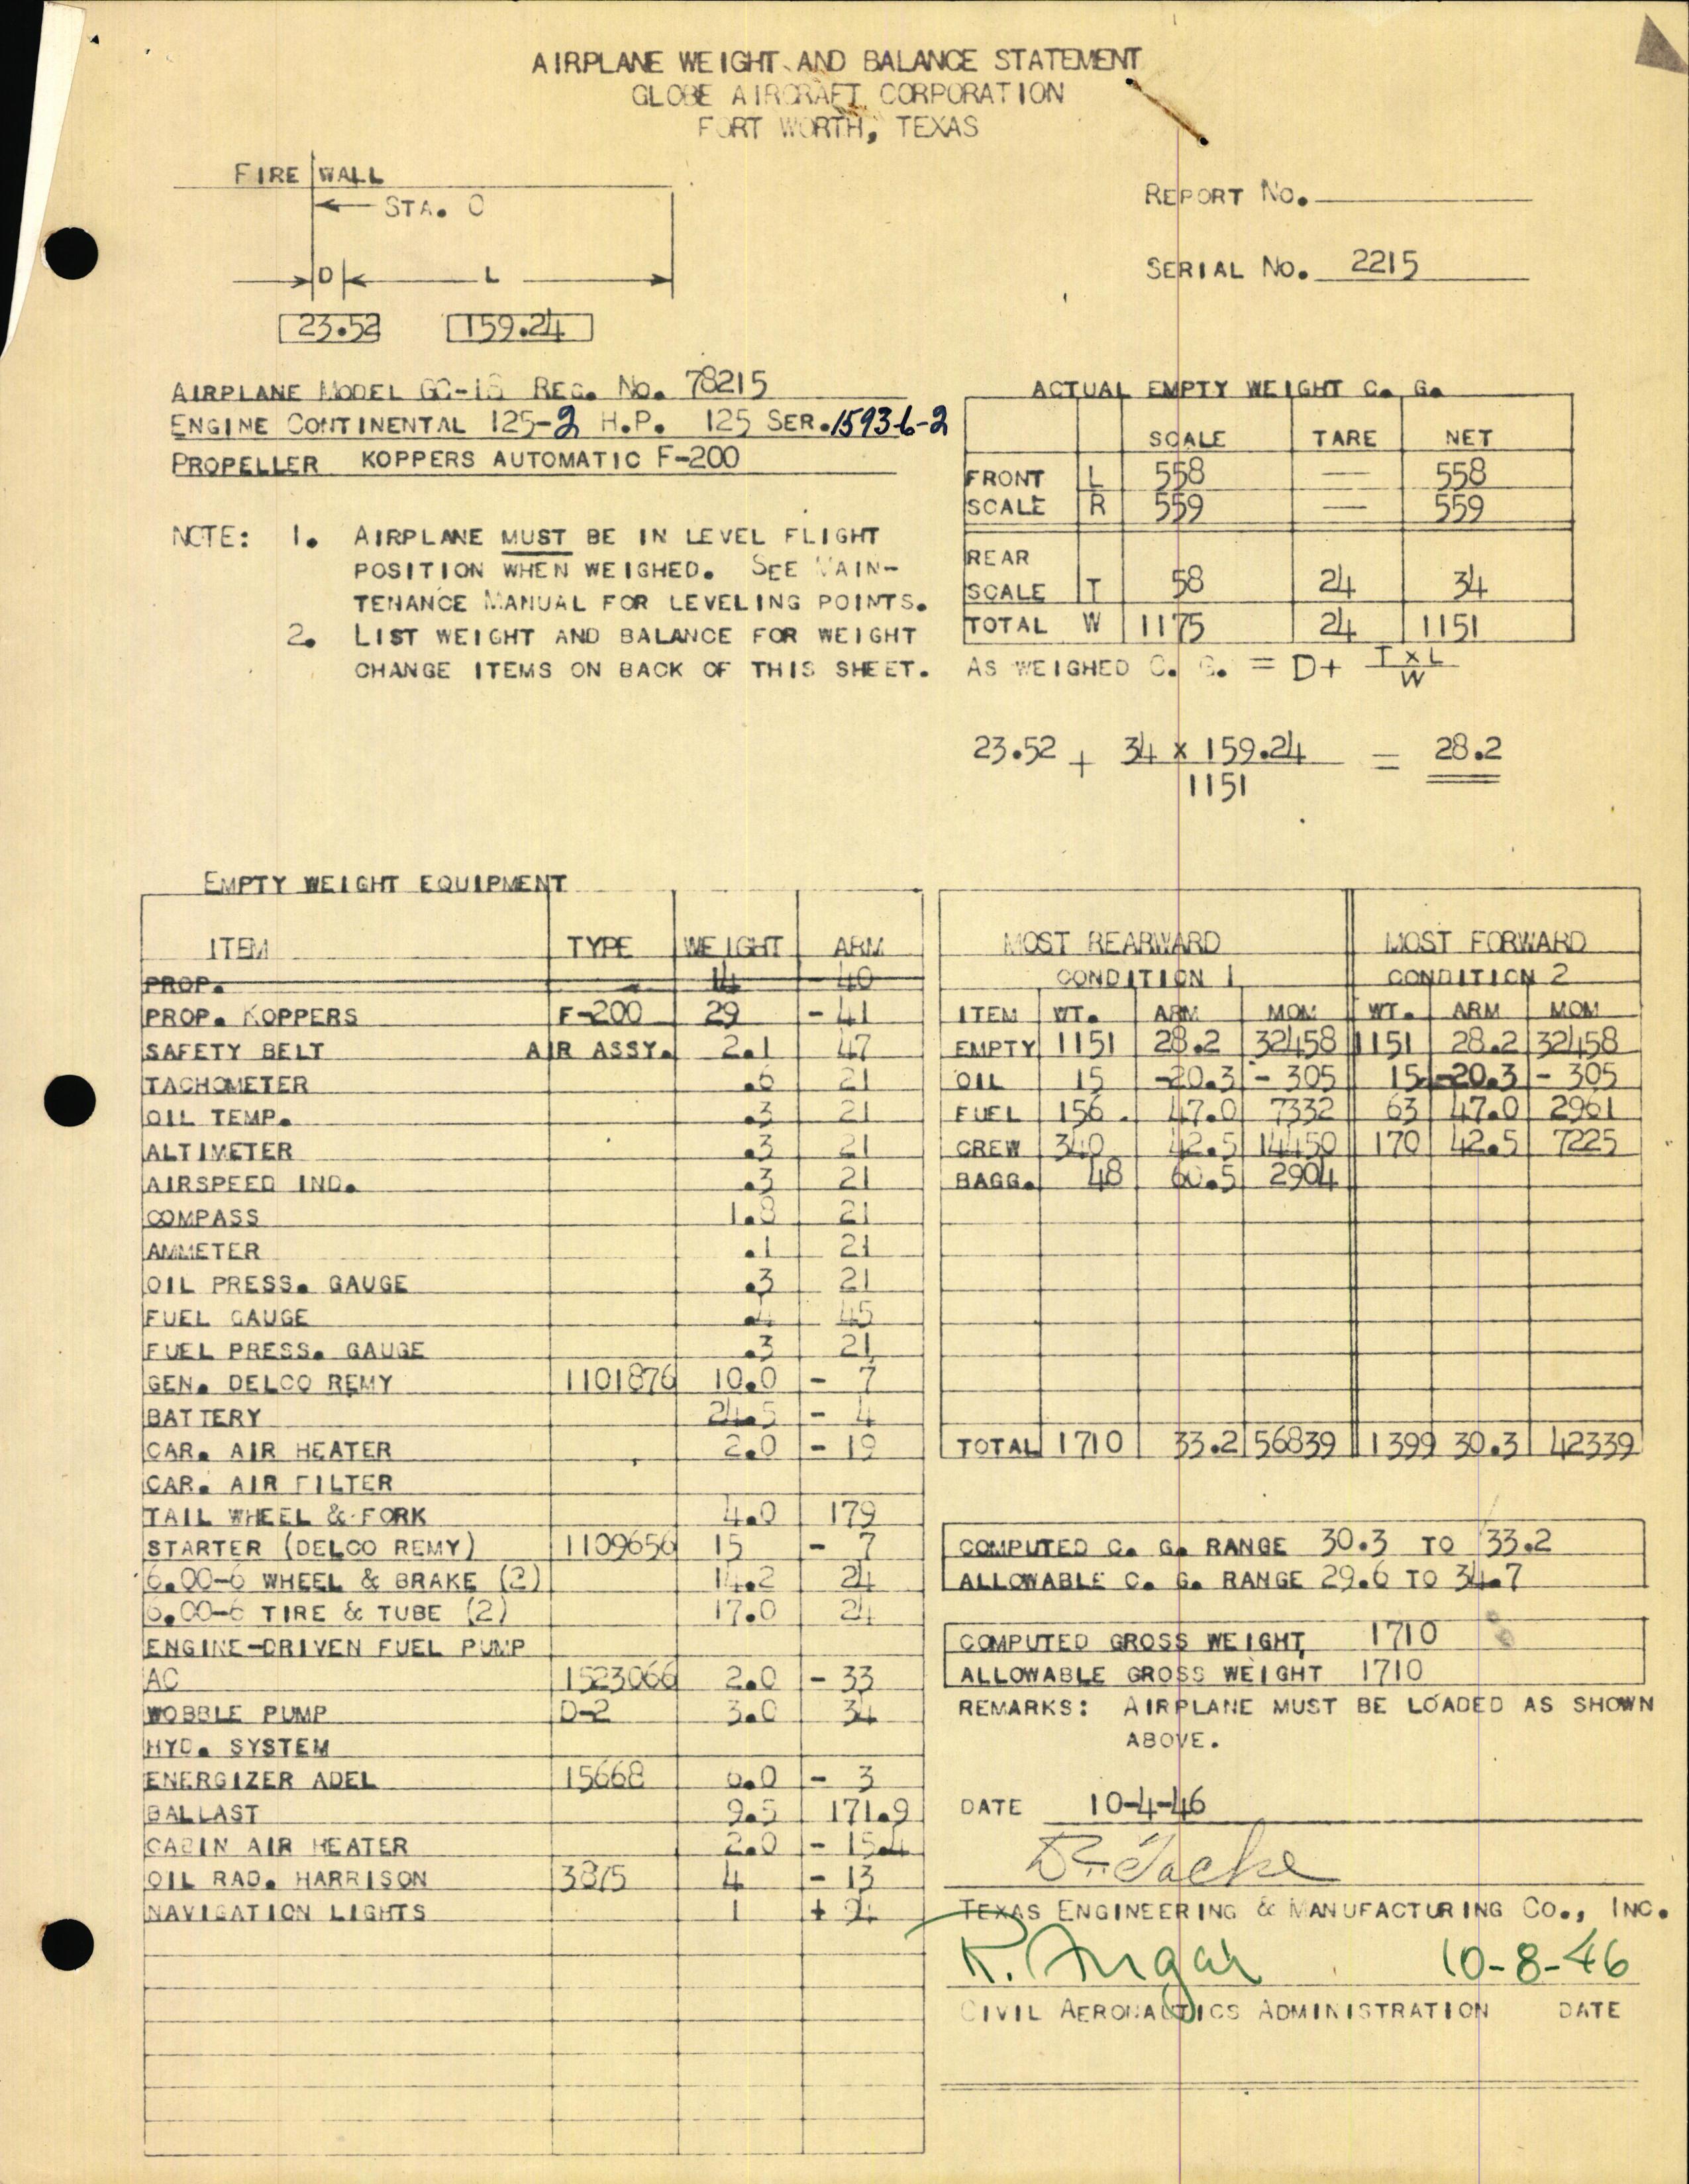 AIRPLANE WEIGHT AND BALANCE STATEMENT
GLOBE AIRCRAFT CORPORATION
FORT WORTH, TEXAS
FIRE WALL
STA. O
D L
23.52 159.24
REPORT NO.
SERIAL NO. 2215
AIRPLANE MODEL GC-1B REG. NO. 78215
ENGINE CONTINENTAL 125-2 H.P. 125 SER. 15936-2
PROPELLER KOPPERS AUTOMATIC F-200
NOTE: 1. AIRPLANE MUST BE IN LEVEL FLIGHT
POSITION WHEN WEIGHED. SEE MAIN-
TENANCE MANUAL FOR LEVELING POINTS.
2. LIST WEIGHT AND BALANCE FOR WEIGHT
CHANGE ITEMS ON BACK OF THIS SHEET.
ACTUAL EMPTY WEIGHT C. G.
SCALE TARE NET
FRONT L 558 — 558
SCALE R 559 — 559
REAR
SCALE T 58 24 34
TOTAL W 1175 24 1151
AS WEIGHED C. G. = D+ T x L
W
23.52 + 34 x 159.24 = 28.2
1151
EMPTY WEIGHT EQUIPMENT
ITEM TYPE WEIGHT ARM
PROP. 14 -40
PROP. KOPPERS F-200 29 - 41
SAFETY BELT AIR ASSY. 2.1 47
TACHOMETER .6 21
OIL TEMP. .3 21
ALTIMETER .3 21
AIRSPEED IND. .3 21
COMPASS 1.8 21
AMMETER .1 21
OIL PRESS. GAUGE .3 21
FUEL GAUGE .4 45
FUEL PRESS. GAUGE .3 21
GEN. DELCO REMY 1101876 10.0 - 7
BATTERY 24.5 - 4
CAR. AIR HEATER 2.0 - 19
CAR. AIR FILTER
TAIL WHEEL & FORK 4.0 179
STARTER (DELCO REMY) 1109656 15 - 7
6.00-6 WHEEL & BRAKE (2) 14.2 24
6.00-6 TIRE & TUBE (2) 17.0 24
ENGINE-DRIVEN FUEL PUMP
AC 1523066 2.0 - 33
WOBBLE PUMP D-2 3.0 34
HYD. SYSTEM
ENERGIZER ADEL 15668 6.0 - 3
BALLAST 9.5 171.9
CABIN AIR HEATER 2.0 - 15.4
OIL RAD. HARRISON 3875 4 - 13
NAVIGATION LIGHTS 1 + 94
MOST REARWARD MOST FORWARD
CONDITION 1 CONDITION 2
ITEM WT. ARM MOM WT. ARM MOM
EMPTY 1151 28.2 32458 1151 28.2 32458
OIL 15 -20.3 - 305 15 -20.3 - 305
FUEL 156 47.0 7332 63 47.0 2961
CREW 340 42.5 14450 170 42.5 7225
BAGG. 48 60.5 2904
TOTAL 1710 33.2 56839 1399 30.3 42339
COMPUTED C. G. RANGE 30.3 TO 33.2
ALLOWABLE C. G. RANGE 29.6 TO 34.7
COMPUTED GROSS WEIGHT 1710
ALLOWABLE GROSS WEIGHT 1710
REMARKS: AIRPLANE MUST BE LOADED AS SHOWN
ABOVE.
DATE 10-4-46
TEXAS ENGINEERING & MANUFACTURING CO., INC.
10-8-46
CIVIL AERONAUTICS ADMINISTRATION DATE